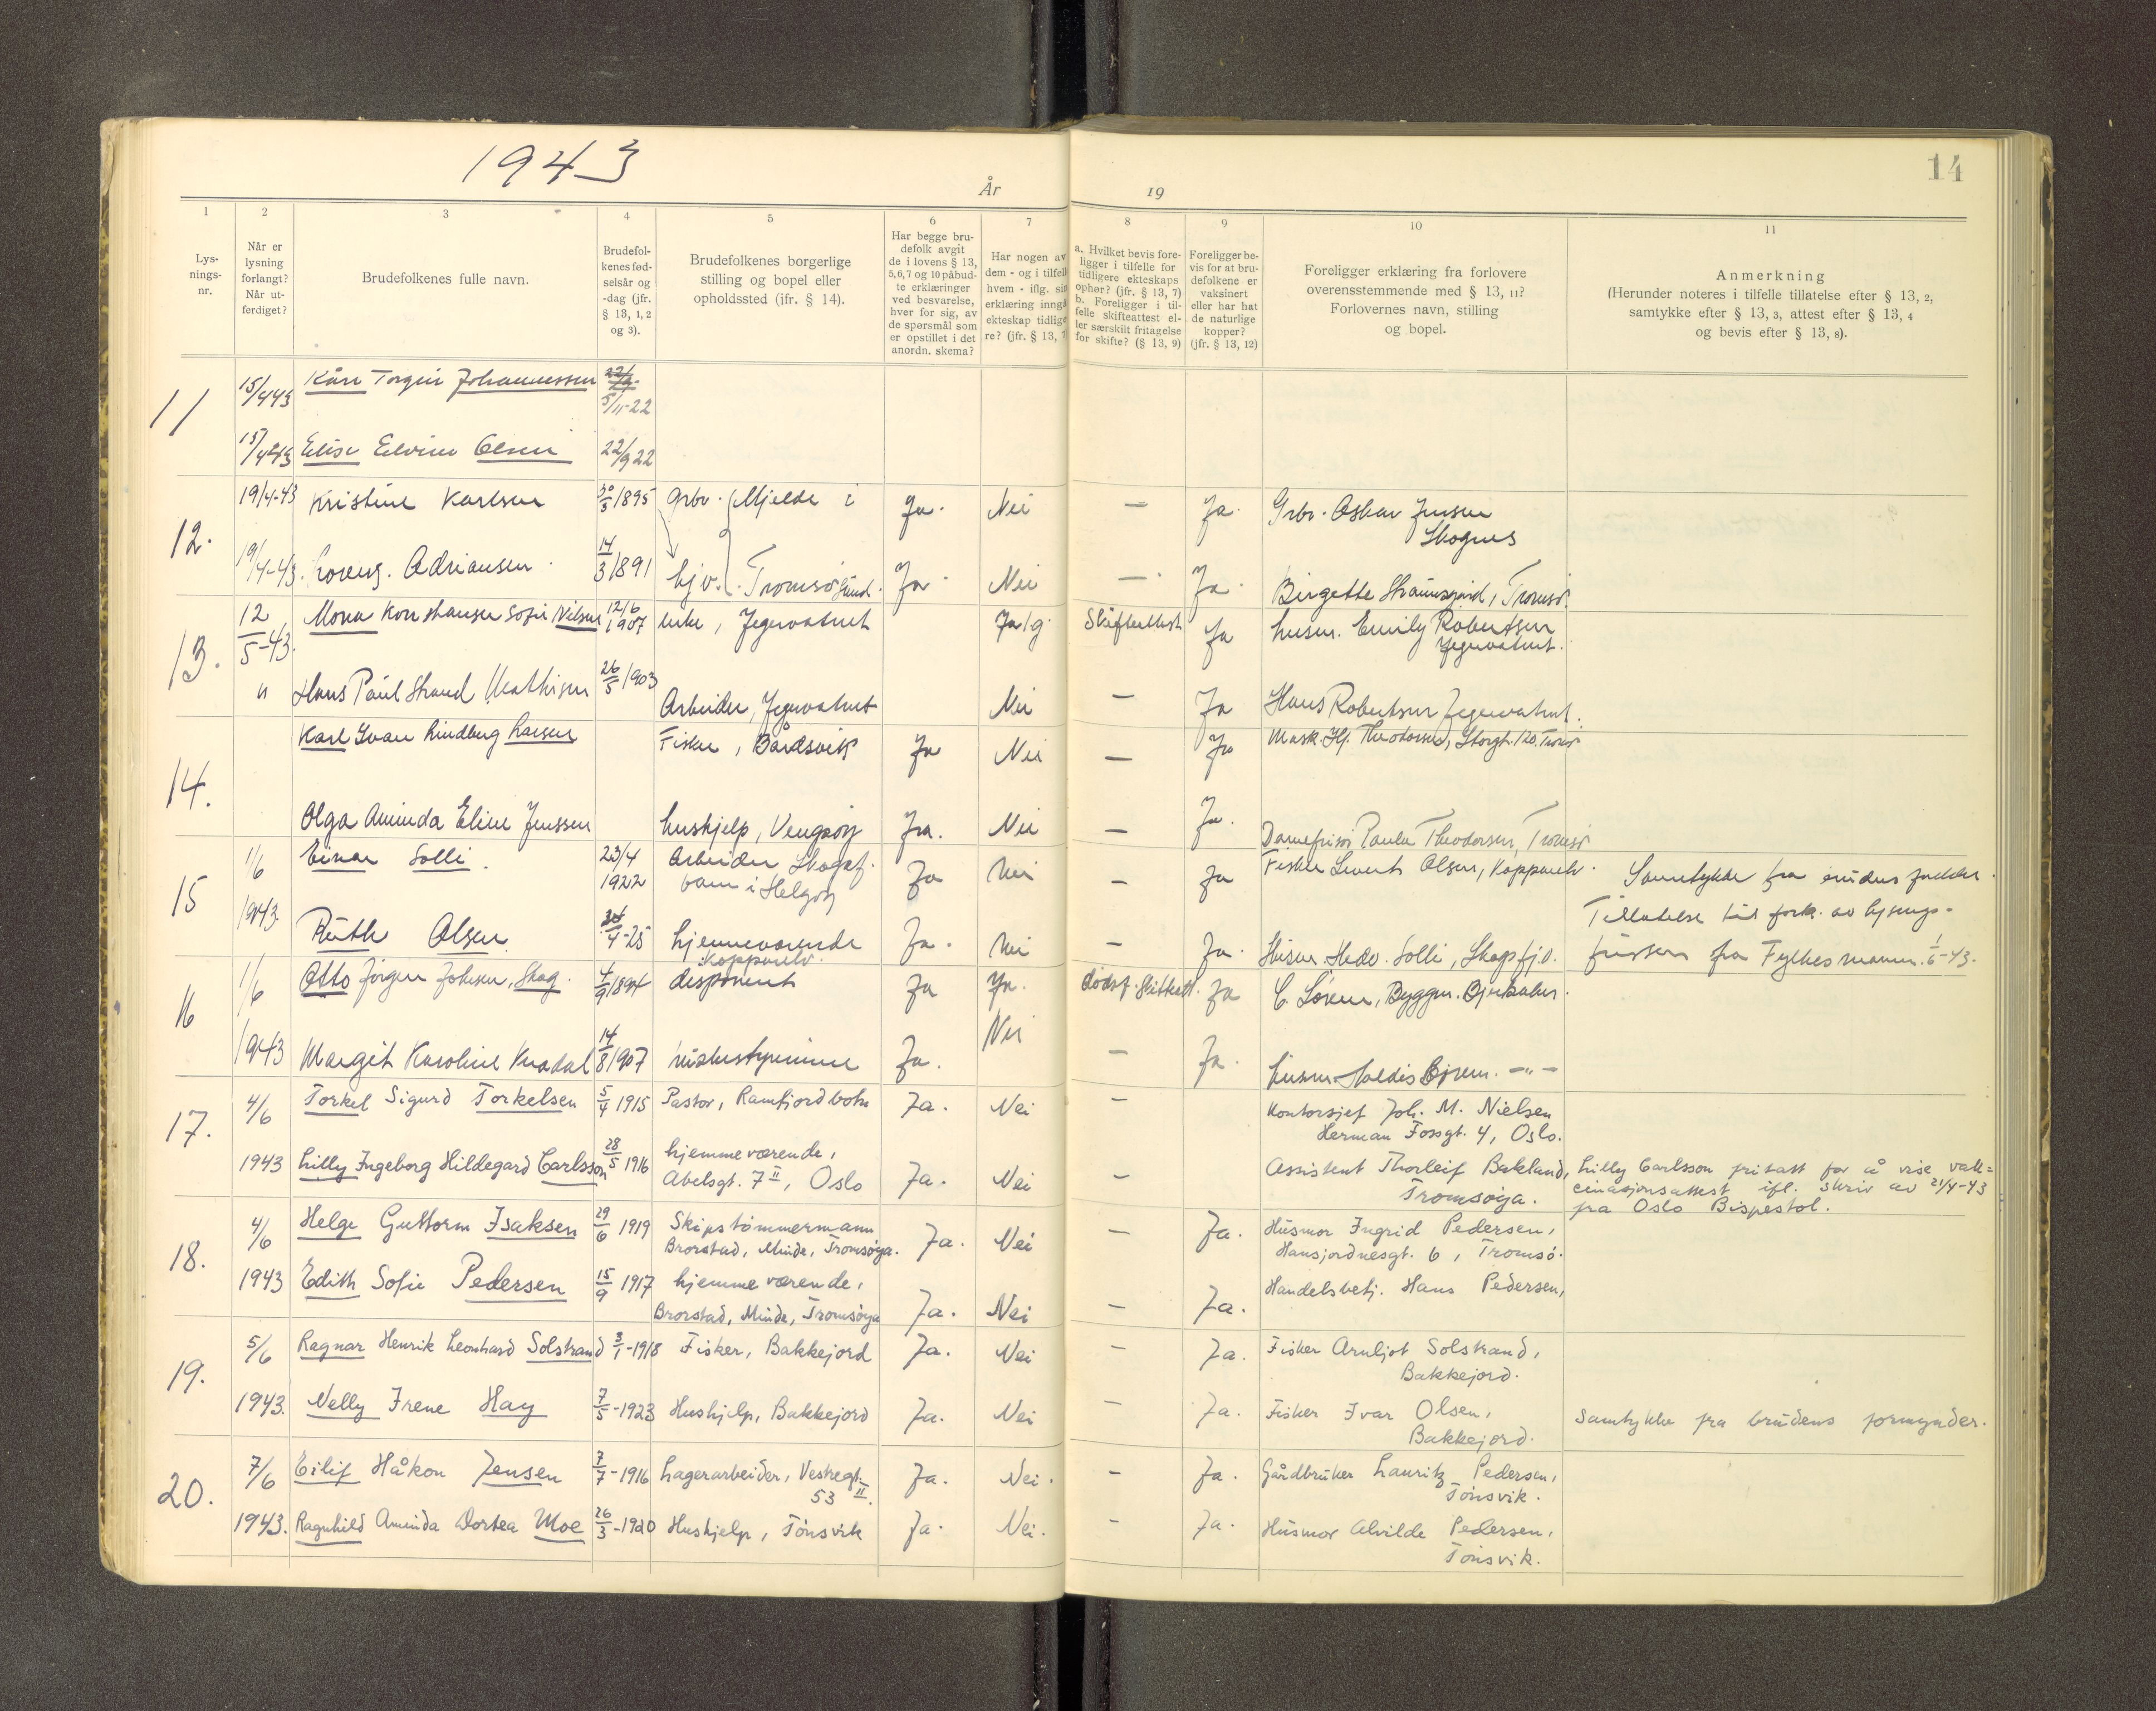 1943
År
19
14
1 2 3 4 5 6 7 8 9 10 11
Lys-
nings-
nr.
Når er
lysning
forlangt?
Når ut-
ferdiget?
Brudefolkenes fulle navn.
Brudefol-
kenes fød-
selsår og
-dag (jfr.
§ 13, 1, 2
og 3).
Brudefolkenes borgerlige
stilling og bopel eller
opholdssted (ifr. § 14).
Har begge bru-
defolk avgit
de i lovens § 13,
5,6,7 og 10 påbud-
te erklæringer
ved besvarelse,
hver for sig, av
de spørsmål som
er opstillet i det
anordn. skema?
Har nogen av
dem - og i tilfell
hvem - iflg. sin
erklæring inngå
ekteskap tidlige
re? (jfr. § 13, 7
a. Hvilket bevis fore-
ligger i tilfelle for
tidligere ekteskaps
ophør? (jfr. § 13, 7)
b. Foreligger i til-
felle skifteattest el-
ler særskilt fritagelse
for skifte? (§ 13, 9)
Foreligger be-
vis for at bru-
defolkene er
vaksinert
eller har hat
de naturlige
kopper?
(jfr. § 13, 12)
Foreligger erklæring fra forlovere
overensstemmende med § 13, 11?
Forlovernes navn, stilling
og bopel.
Anmerkning
(Herunder noteres i tilfelle tillatelse efter § 13, 2,
samtykke efter § 13, 3, attest efter § 13, 4
og bevis efter § 13, 8).
11
15/4 43 Kåre Torgeir Johannessen
5/11-22
15/4 43 Elise Elvine Olsen 22/9 22
12.
19/4-43 Kristine Karlsen 30/3 1895 grbr. Mjelde i Ja. Nei — Ja. Grbr. Oskar Jensen
Skognes
19/4-43. Lorenz. Adriansen. 14/3 1891 hjv. Tromsøsund. Ja. Nei —. Ja. Birgette Straumsgård, Tromsø.
13.
12/5-43. Mona Konstanse Sofie Nilsen 12/6 1907 enke, Jegervatnet Ja/g. Skifteattest Ja husm. Emily Robertsen
Jegervatnet.
" Hans Paul Strand Mathisen 26/5 1903 Arbeider, Jegervatnet Nei — Ja Hans Robertsen Jegervatnet.
14.
Karl Ivar Lindberg Larsen Fisker, Bårdsvik Ja Nei — Ja Mask. Hj. Theodorsen, Storgt. 120. Tromsø
Olga Aminda Eline Jenssen hushjelp, Vengsøy Ja. Nei — Ja. Damefrisør Paula Theodorsen, Tromsø
15
1/6 Einar Solli. 23/4 1922 Arbeider Skogsf.
i Helgøy Ja Nei — Ja Fisker Sivert Olsen, Kopparelv. Samtykke fra
Tillatelse til fork. av lysnings-
1943 Ruth Olsen. 4-25 hjemmeværende
Kopparelv. Ja. Nei — Ja. Husm. Hedv. Solli, Skogsfj.v. fristen fra Fylkesmannen. 1/6-43.
16
1/6 Otto Jørgen Johnsen, Skog. 4/9 1894 disponent Ja Ja. dødsf. Skifteatt. Ja C. Sørum, Byggm. Bjerkaker.
1943 Margit Karoline Kvadal 14/8 1907 husbestyrerinne Ja. Nei — Ja. husm. Haldis Bjrem. —"—
17.
4/6 Torkel Sigurd Torkelsen 5/4 1915 Pastor, Ramfjordbotn Ja. Nei — Kontorsjef Joh. M. Nielsen
Herman Fossgt. 4, Oslo.
1943 Lilly Ingeborg Hildegard Carlsson 28/5 1916 hjemmeværende,
Abelsgt. 7 II, Oslo Ja. Nei — Assistent Thorleif Bakland,
Tromsøya.
Lilly Carlsson fritatt for å vise vak=
cinasjonsattest ifl. skriv av 21/4-43
fra Oslo Bispestol.
18.
4/6 Helge Guttorm Isaksen 29/6 1919 Skipstømmermann
Brorstad, Minde, Tromsøya. Ja. Nei — Ja. Husmor Ingrid Pedersen,
Hansjordnesgt. 6, Tromsø.
1943 Edith Sofie Pedersen 15/9 1917 hjemmeværende,
Brorstad, Minde, Tromsøya Ja. Nei — Ja. Handelsbetj. Hans Pedersen,
19.
5/6 Ragnar Henrik Leonhard Solstrand 3/1-1918 Fisker, Bakkejord Ja. Nei — Ja. Fisker Arnljot Solstrand,
Bakkejord.
1943. Nelly Irene Hay 7/5-1923 Hushjelp, Bakkejord Ja. Nei — Ja. Fisker Ivar Olsen,
Bakkejord.
Samtykke fra brudens formynder.
20.
7/6 Eilif Håkon Jensen 7/7-1916 Lagerarbeider, Vestregt.
53 II. Ja. Nei. — Ja. Gårdbruker Lauritz Pedersen,
Tønsvik.
1943. Ragnhild Aminda Dortea Moe 26/3-1920 Hushjelp, Tønsvik Ja. Nei. — Ja. Husmor Alvilde Pedersen,
Tønsvik.